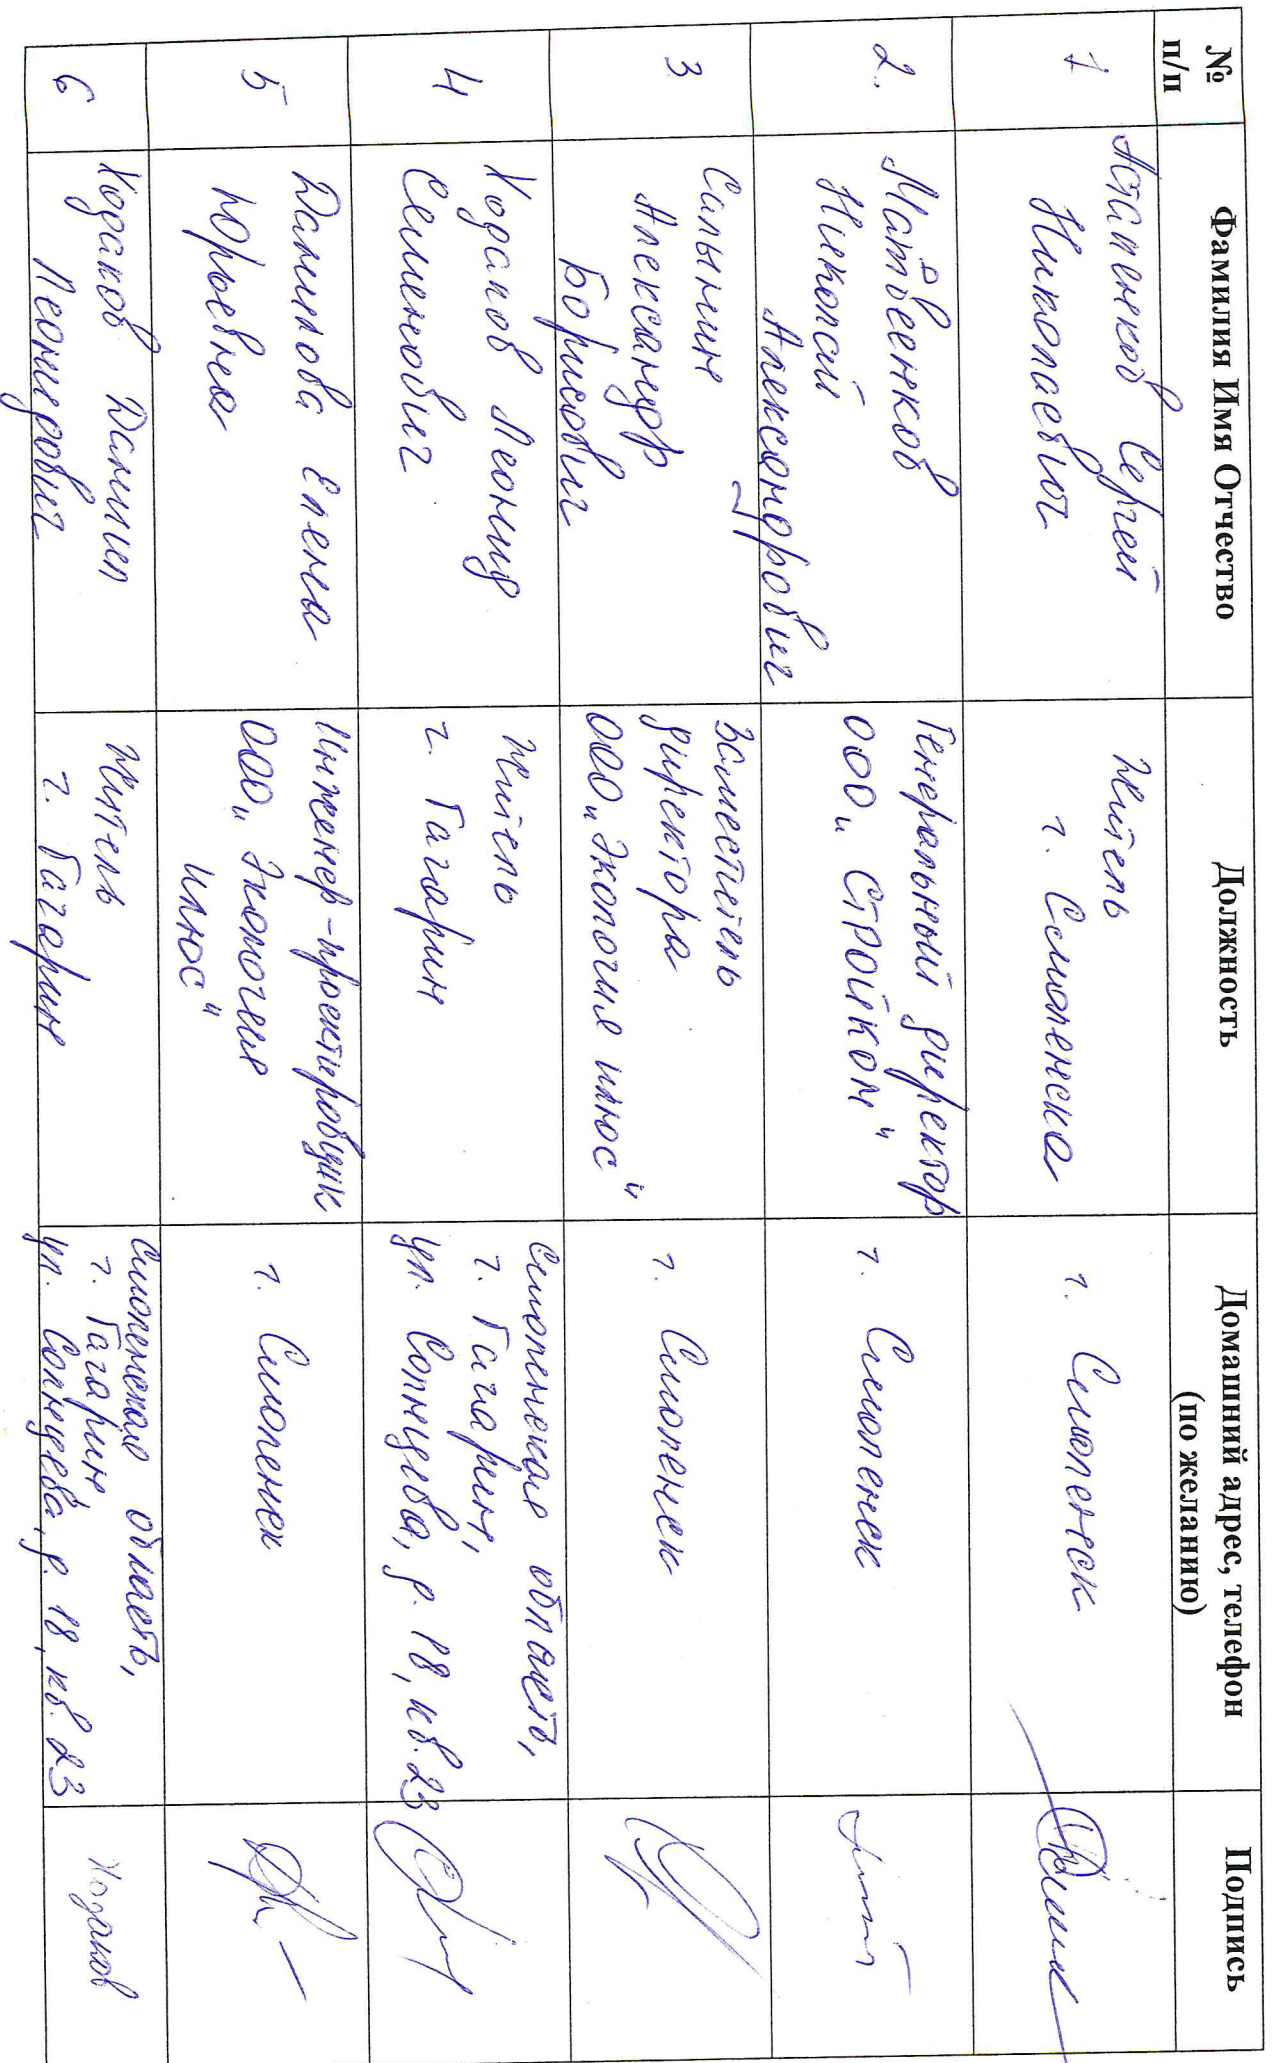 №
п/п
Фамилия Имя Отчество
Должность
Домашний адрес, телефон
(по желанию)
Подпись
1
Астапенков Сергей
Николаевич
Житель
г. Смоленска
г. Смоленск
2.
Матвеенков
Николай
Александрович
Генеральный директор
ООО „Стройком"
г. Смоленск
3
Александр
Борисович
Заместитель
директора
ООО „Экология плюс"
г. Смоленск
4
Ходаков Леонид
Семенович
Житель
г. Гагарин
Смоленская область,
г. Гагарин,
ул. Солнцева, д. 18, кв. 23
5
Данилова Елена
Юрьевна
Инженер-проектировщик
ООО „Экология
плюс"
г. Смоленск
6
Ходаков Даниил
Леонидович
Житель
г. Гагарин
Смоленская область,
г. Гагарин
ул. Солнцева, д. 18, кв. 23
Ходаков